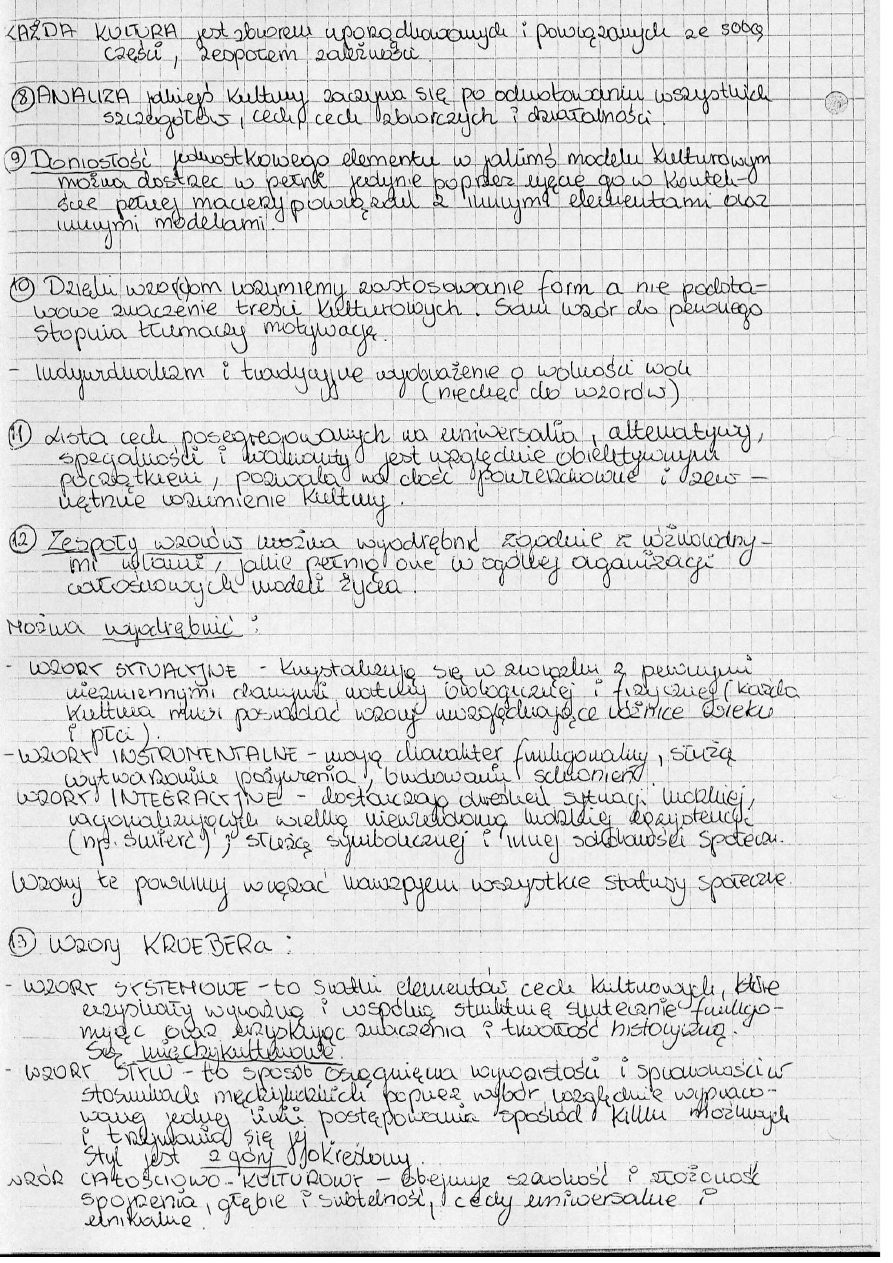 KAŻDA KULTURA jest zbiorem uporządkowanych i powiązanych ze sobą
części, zespołem zależności.
8 ANALIZA jakiejś kultury zaczyna się po odnotowaniu wszystkich
szczegółów, cech, cech zbiorczych i działalności.
9 Doniosłość jednostkowego elementu w jakimś modelu kulturowym
można dostrzec w pełni jedynie poprzez ujęcie go w kontek-
ście pełnej macierzy powiązań z innymi elementami oraz
innymi modelami.
10 Dzięki wzorom rozumiemy zastosowanie form a nie podsta-
wowe znaczenie treści kulturowych. Sam wzór do pewnego
stopnia tłumaczy motywację.
- Indywidualizm i tradycyjne wyobrażenie o wolności woli
(niechęć do wzorów)
11 Lista cech posegregowanych na uniwersalia, alternatywy,
specjalności i warianty jest względnie obiektywnym
początkiem, pozwala na dość powierzchowne i zew-
nętrzne rozumienie kultury.
12 Zespoły wzorów można wyodrębnić zgodnie z różnorodny-
mi rolami, jakie pełnią one w ogólnej organizacji
całościowych modeli życia.
Można wyodrębnić:
- WZORY SYTUACYJNE - krystalizują się w związku z pewnymi
niezmiennymi danymi natury biologicznej i fizycznej (każda
kultura musi posiadać wzory uwzględniające różnice wieku
i płci).
- WZORY INSTRUMENTALNE - mają charakter funkcjonalny, służą
wytwarzaniu pożywienia, budowaniu schronień
WZORY INTEGRACYJNE - dostarczają określeń sytuacji ludzkiej,
racjonalizujących wielką niewiadomą ludzkiej egzystencji
(np. śmierć), służą symbolicznej i innej solidarności społeczn.
Wzory te powinny wiązać nawzajem wszystkie statusy społeczne.
13 Wzory KROEBERa:
- WZORY SYSTEMOWE - to siatki elementów cech kulturowych, które
uzyskały wyraźną i wspólną strukturę skutecznie funkcjo-
nując oraz uzyskując znaczenia i trwałość historyczną.
Są międzykulturowe.
- WZORY STYLU - to sposób osiągnięcia wyrazistości i sprawności w
stosunkach międzyludzkich poprzez wybór względnie wypraco-
wanej jednej linii postępowania spośród kilku możliwych
i trzymania się jej.
Styl jest z góry określony.
WZÓR CAŁOŚCIOWO-KULTUROWY - obejmuje szerokość i złożoność
spojrzenia, głębię i subtelność, cechy uniwersalne i
unikalne.